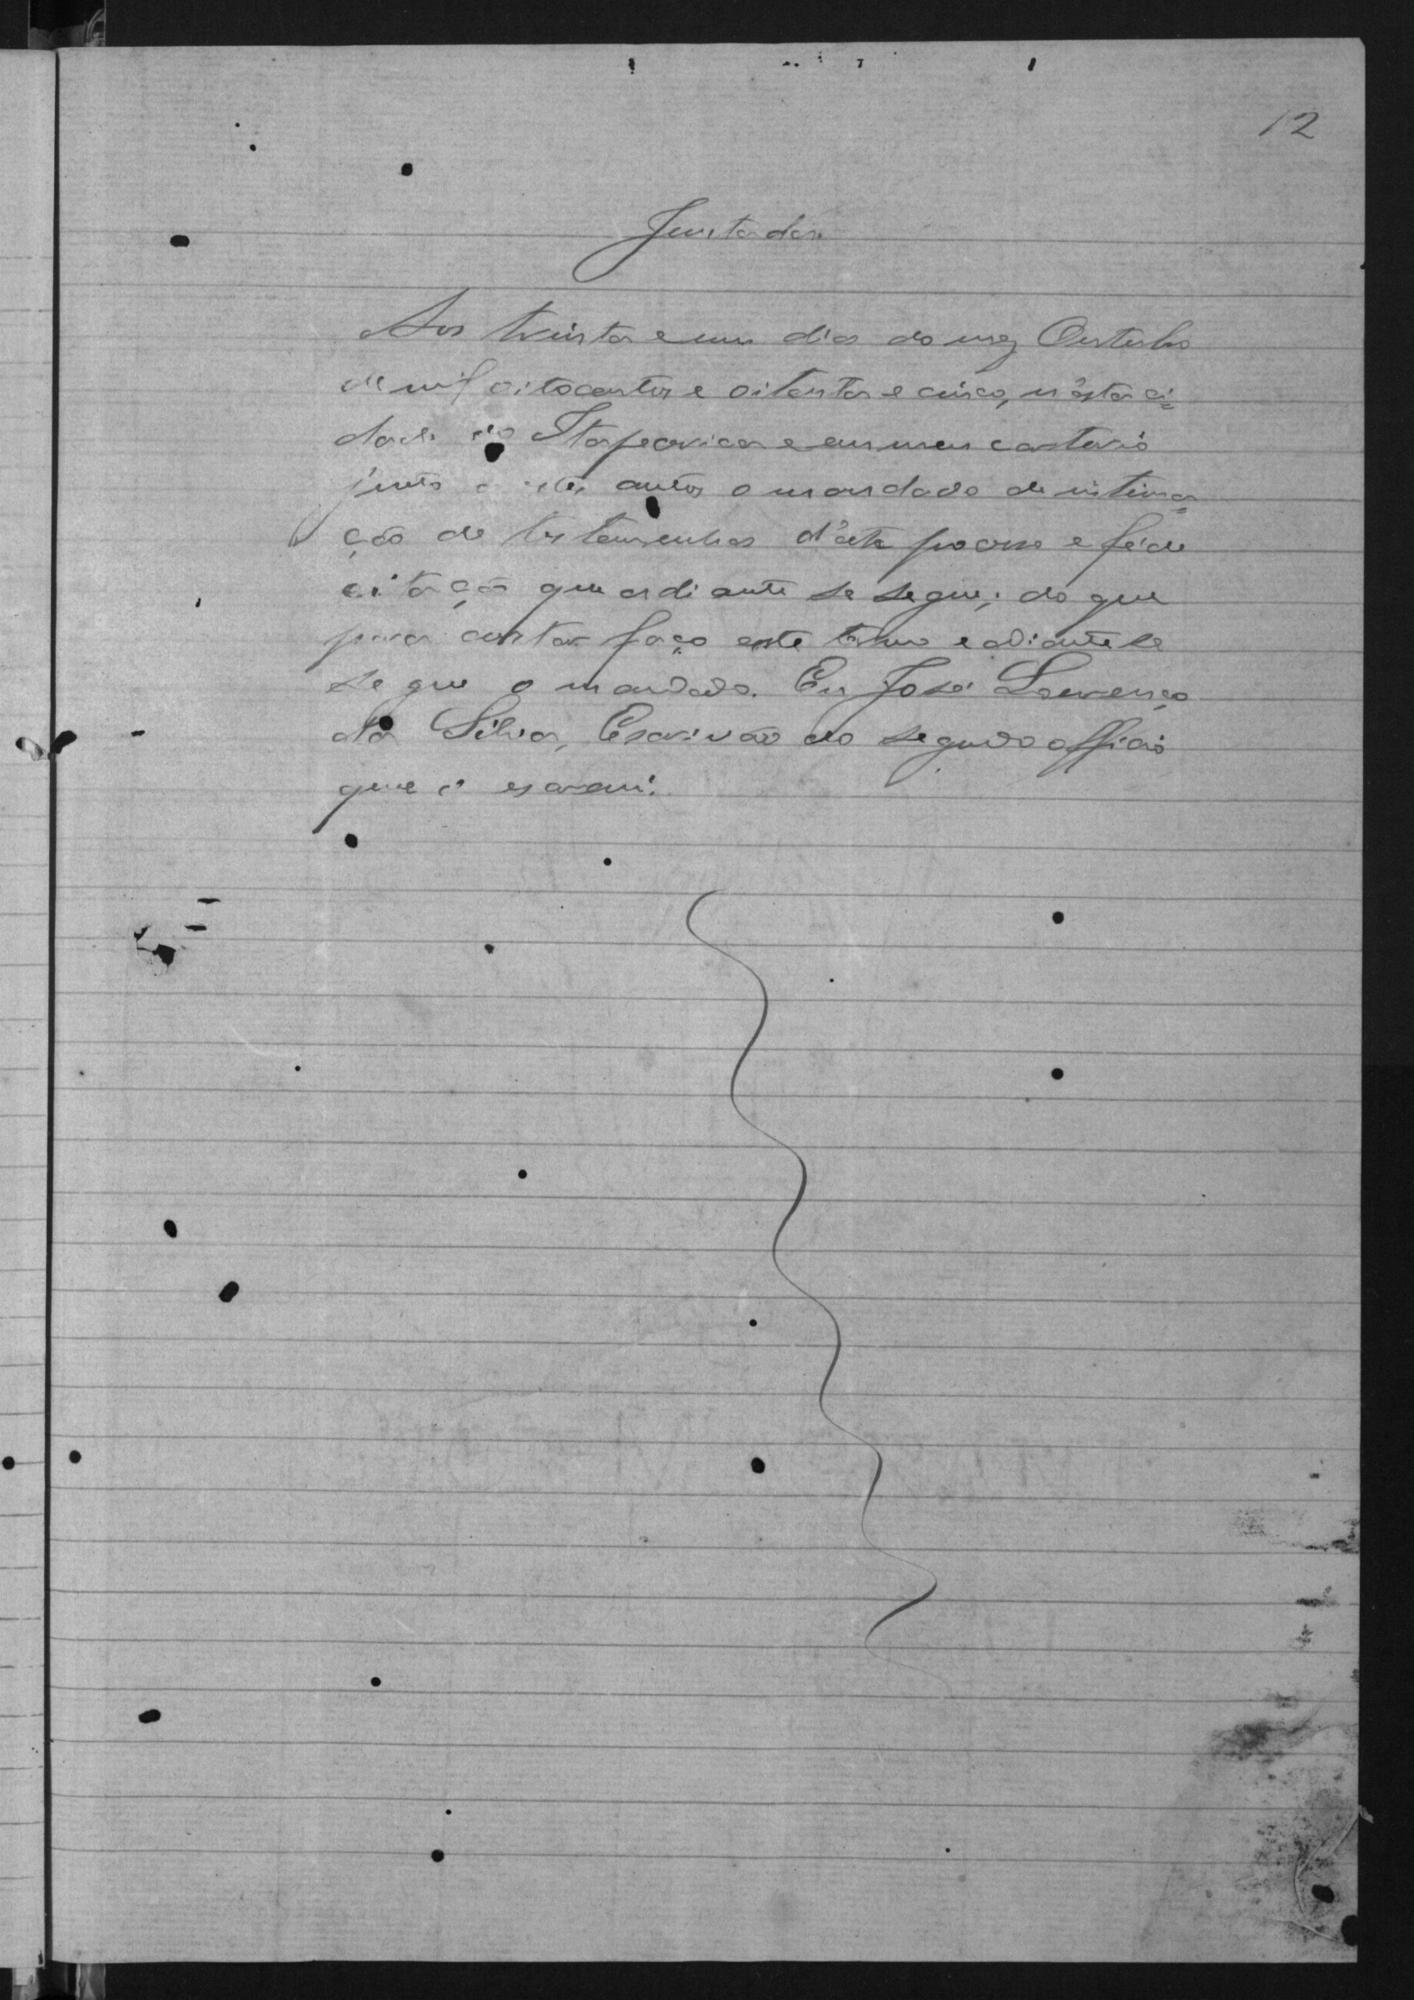 12
Juntada.
Aos trinta e um dias do mez Outubro
de mil oitocentos e oitenta e cinco, n'ésta ci=
dade de Itapecirica e em meu cartorio
junto a estes autos o mandado de intima=
ção de testemunhas d'este processo e fé de
citação que adiante se segue; do que
para constar faço este termo e adiante se
segue o mandado. Eu José Lourenço
da Silva, Escrivão do segundo officio
que o escrevi.